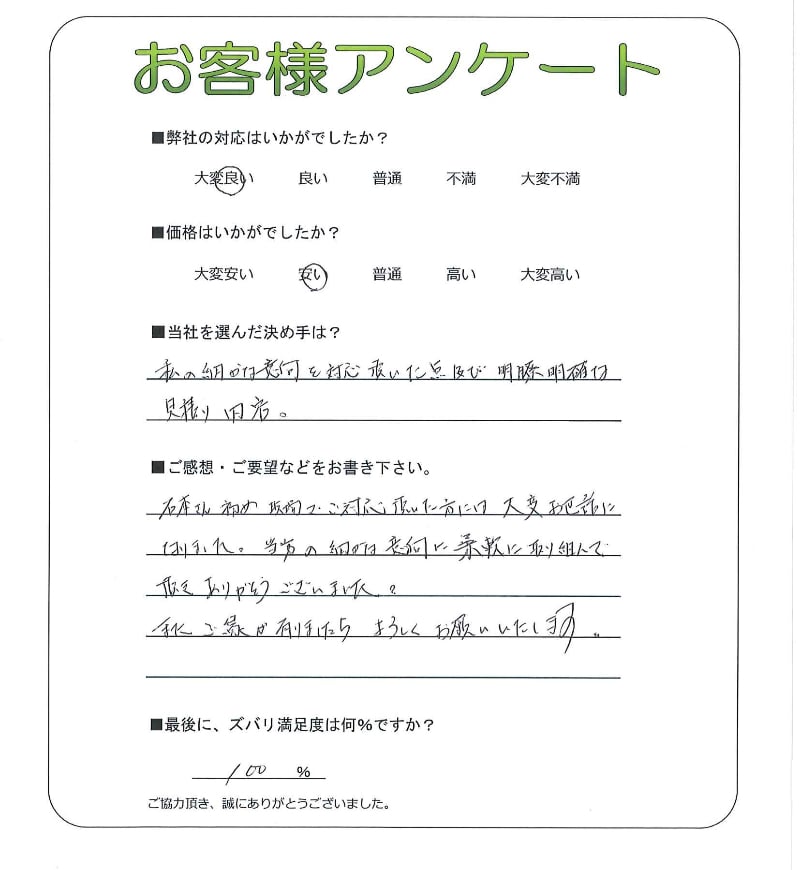 お客様アンケート
■弊社の対応はいかがでしたか？
大変良い 良い 普通 不満 大変不満
■価格はいかがでしたか？
大変安い 安い 普通 高い 大変高い
■当社を選んだ決め手は？
私の細かな意向を対応頂いた点及び 明瞭明確な
見積り内容。
■ご感想・ご要望などをお書き下さい。
初め ご対応頂いた方には 大変お世話に
なりました。当方の細かな意向に柔軟に取り組んで
頂き ありがとうございました。
又 ご縁が有りましたら よろしく お願いいたします。
■最後に、ズバリ満足度は何％ですか？
100 ％
ご協力頂き、誠にありがとうございました。